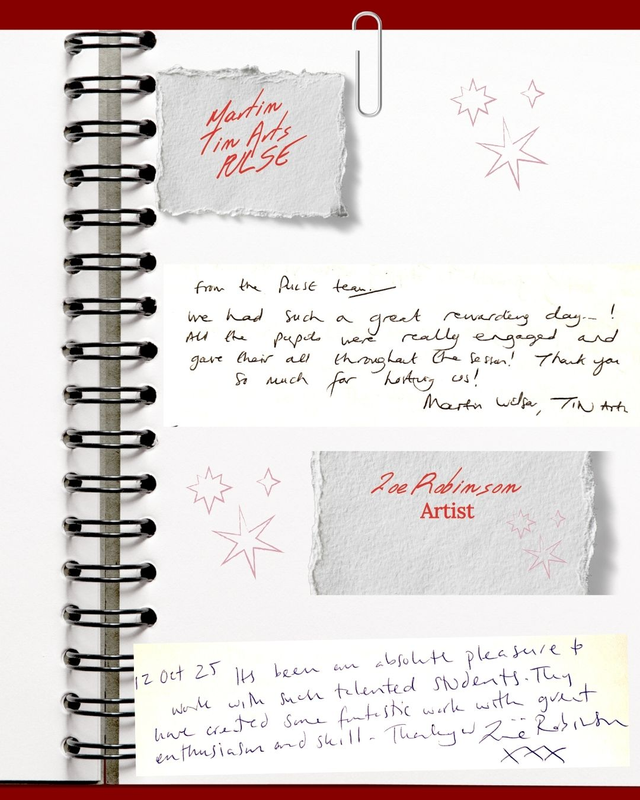 Martin
Tin Arts
RCSE
from the RCSE team.
We had such a great rewarding day...!
All the pupils were really engaged and
gave their all throughout the session! Thank you
so much for hosting us!
Martin Wilson, TIN Arts
Zoe Robinson
Artist
12 Oct 25 Its been an absolute pleasure to
work with such talented students. They
have created some fantastic work with great
enthusiasm and skill. Thankyou Zoë Robinson
xxx